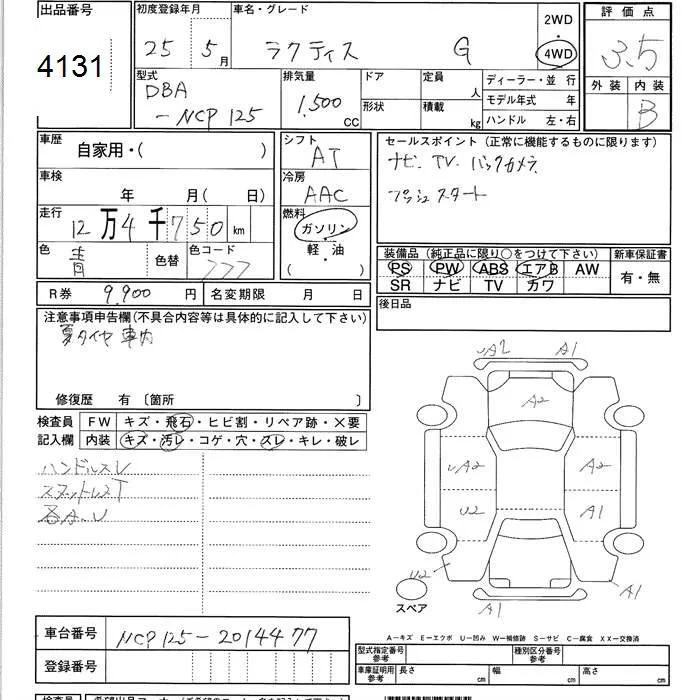 出品番号 初度登録年月 車名・グレード 2WD 評価点
4131 25年 5月 ラクティス G 4WD 3.5
型式 排気量 ドア 定員 人 ディーラー・並行 外装 内装
DBA 1,500 CC 形状 積載 kg モデル年式 年 B
-NCP125 ハンドル 左・右
車歴 自家用・( ) シフト AT セールスポイント (正常に機能するものに限ります)
車検 年 月( 日) 冷房 AAC ナビ、TV、バックカメラ
プッシュスタート
走行 12万4千750km 燃料 ガソリン
軽・油
( )
色 青 色替 色コード 777
装備品 (純正品に限り○をつけて下さい) 新車保証書
PS PW ABS エアB AW 有・無
SR ナビ TV カワ
R券 9,900円 名変期限 月 日 後日品
注意事項申告欄(不具合内容等は具体的に記入して下さい)
夏タイヤ車内
修復歴 有 〔箇所 〕
検査員 FW キズ・飛石・ヒビ割・リペア跡・×要
記入欄 内装 キズ・汚レ・コゲ・穴・スレ・キレ・破レ
ハンドルスレ
A1
A2
A2
A1
U2
U2
A1
A1
スペア
A-キズ E-エクボ U-凹み W-補修跡 S-サビ C-腐食 XX-交換済
車台番号 NCP125-2014477
登録番号
型式指定番号 参考 種別区分番号 参考
車庫証明用 参考 長さ cm 幅 cm 高さ cm